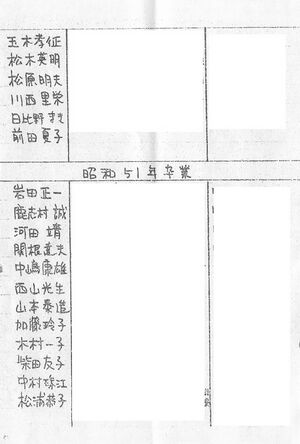 玉木孝征
松木英明
松原明夫
川西里栄
日比野
前田夏子
昭和51年卒業
岩田正一
鹿志村誠
河田靖
関根達夫
中嶋康雄
西山光生
山本泰造
加藤玲子
木村一子
柴田友子
中村珠江
松浦恭子